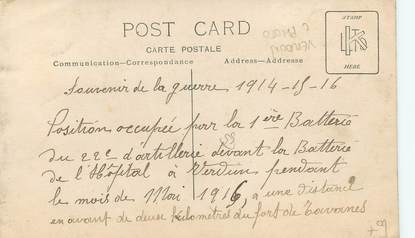 POST CARD
CARTE POSTALE
Communication—Correspondance
Address—Addresse
STAMP
HERE
VERDUN
Souvenir de la guerre 1914-15-16
Position occupée par la 1ère Batterie
du 22e d'artillerie devant la Batterie
de l'Hôpital à Verdun pendant
le mois de Mai 1916, a une distance
en avant de deux kilomètres du fort de Tavanes